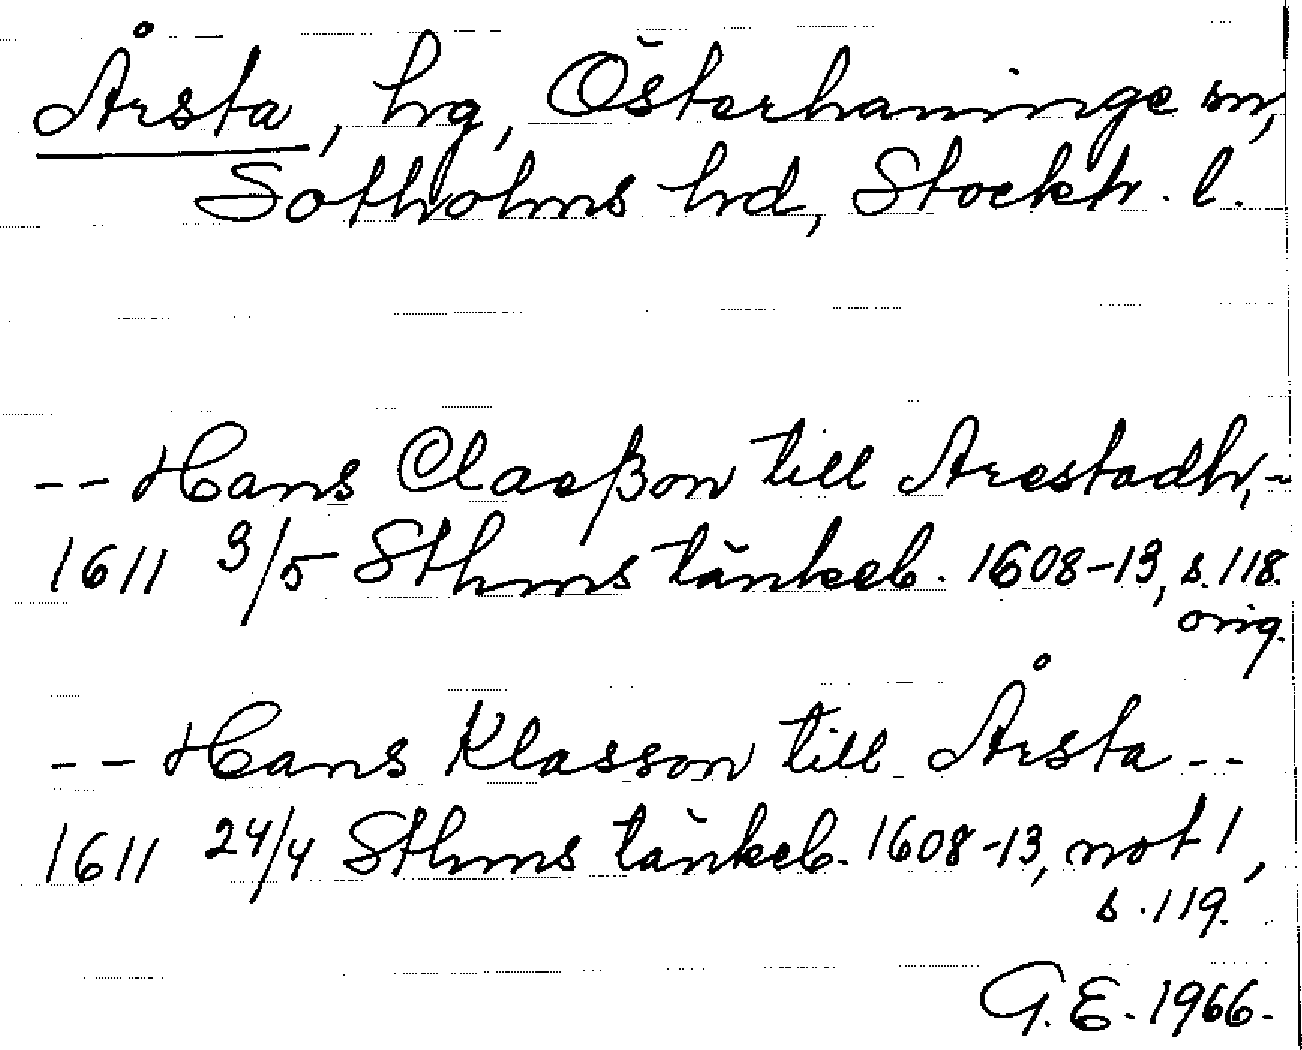 Årsta, hg, Österhaninge sn,
Sotholms hd, Stockh. l.
-- Hans Claeßon till Arestadh, -
1611 3/5 Sthms tänkeb. 1608-13, s. 118.
orig.
-- Hans Klasson till Årsta --
1611 24/4 Sthms tänkeb. 1608-13, not 1,
s. 119.
G. E. 1966.